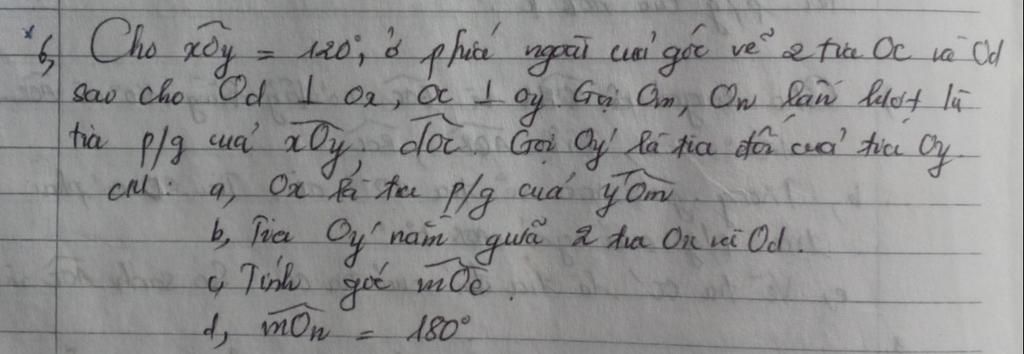 * 6, Cho xOy = 120°, ở phía ngoài của góc vẽ 2 tia Oc và Od
sao cho Od ⊥ Ox, Oc ⊥ Oy. Gọi Om, On lần lượt là
tia p/g của xOy, dOc. Gọi Oy' là tia đối của tia Oy
CM: a, Ox là tia p/g của y'Om
b, Tia Oy' nằm giữa 2 tia Ox và Od.
c, Tính góc mOc.
d, mOn = 180°